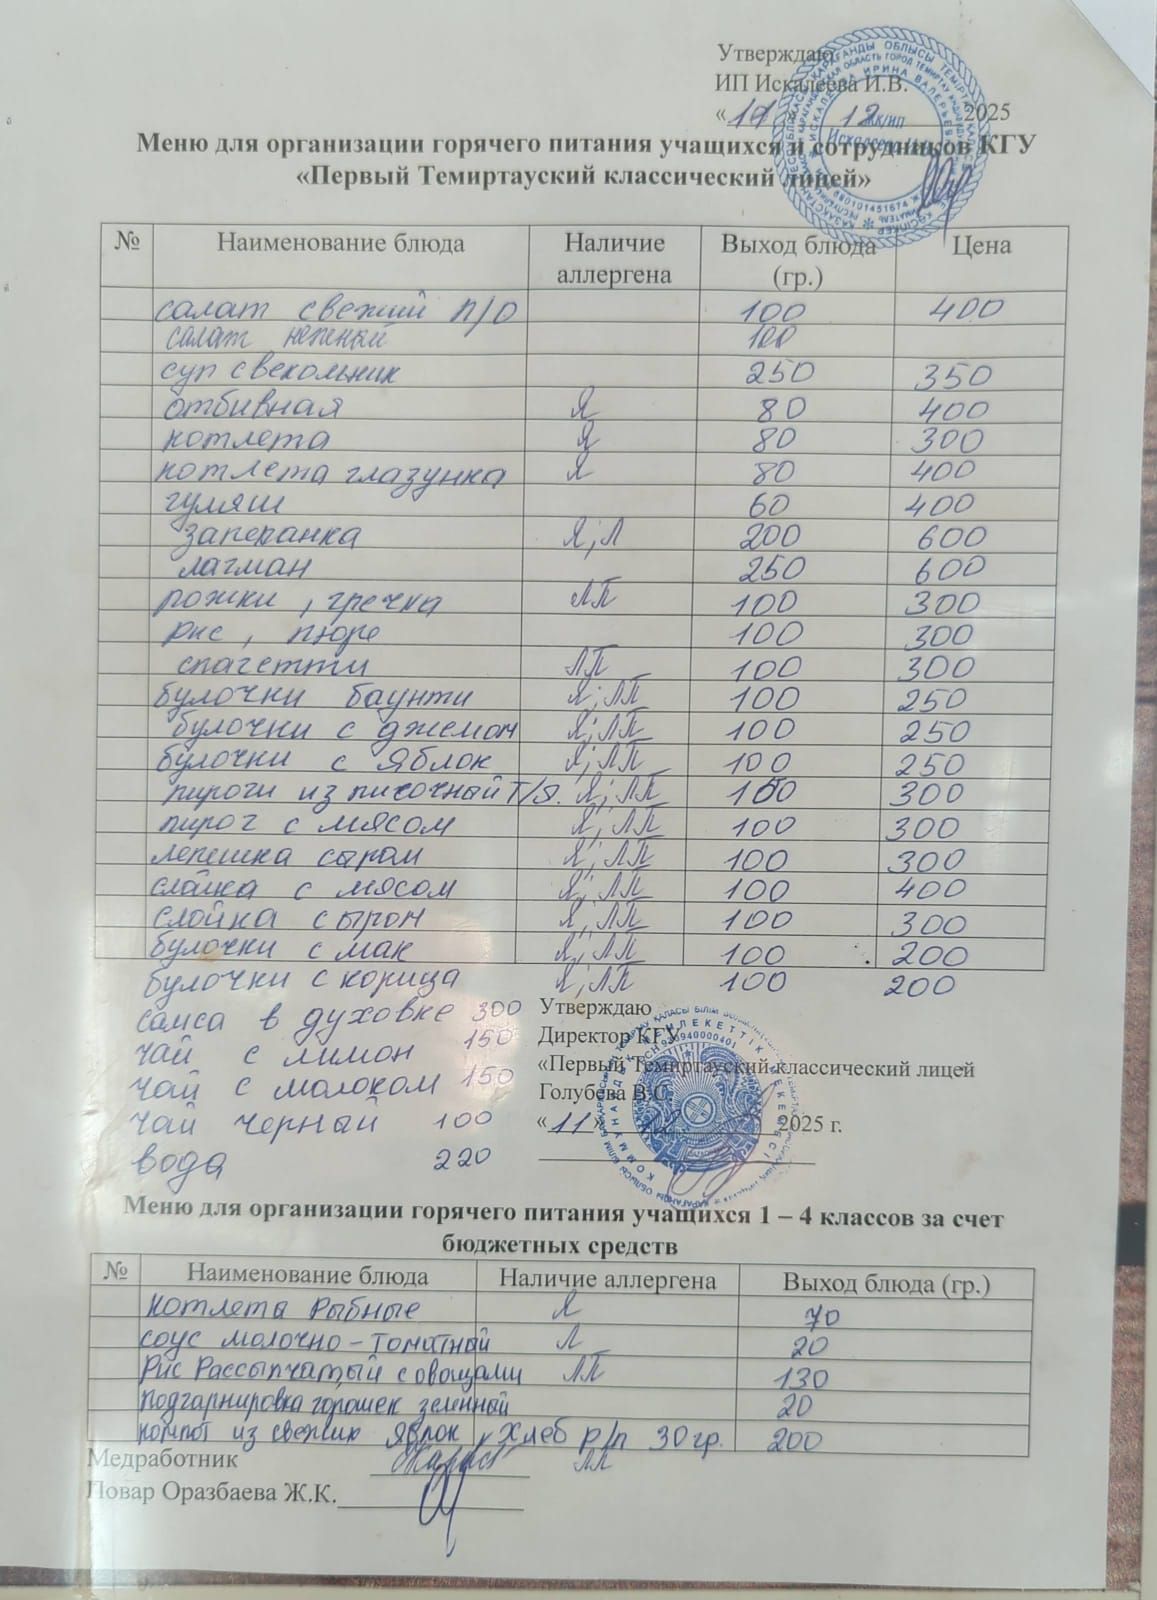 Утверждаю
ИП Искалеева И.В.
«11» 12 2025
Меню для организации горячего питания учащихся и сотрудников КГУ
«Первый Темиртауский классический лицей»
№ Наименование блюда Наличие аллергена Выход блюда (гр.) Цена
салат свежий п/о 100 400
салат нежный 100
суп свекольник 250 350
отбивная Я 80 400
котлета Я 80 300
котлета глазунка Я 80 400
гуляш 60 400
запеканка Я, Л 200 600
лагман 250 600
рожки, гречка ЛП 100 300
рис, пюре 100 300
спагетти ЛП 100 300
булочки баунти Я; ЛП 100 250
булочки с джемом Я; ЛП 100 250
булочки с яблок Я; ЛП 100 250
пироги из писочный т/я. Я; ЛП 150 300
пирог с мясом Я; ЛП 100 300
лепешка сыром Я; ЛП 100 300
слайка с мясом Я; ЛП 100 400
слойка сырон Я; ЛП 100 300
булочки с мак Я; ЛП 100 200
булочки с корица Я; ЛП 100 200
самса в духовке 300
чай с лимон 150
чай с молоком 150
чай черный 100
вода 220
Утверждаю
Директор КГУ
«Первый Темиртауский классический лицей
Голубева В.С.
«11» 12 2025 г.
Меню для организации горячего питания учащихся 1 – 4 классов за счет
бюджетных средств
№ Наименование блюда Наличие аллергена Выход блюда (гр.)
котлеты рыбные Я 70
соус молочно-томатный Л 20
Рис Рассыпчатый с овощами ЛП 130
подгарнировка горошек зеленный 20
компот из свежих яблок, хлеб р/п 30 гр. 200
ЛП
Медработник
Повар Оразбаева Ж.К.